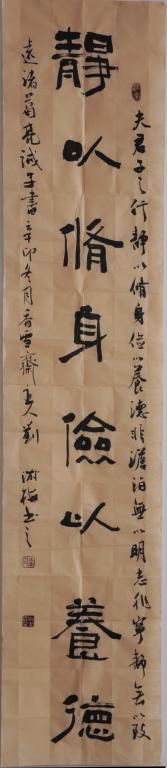 夫君子之行静以脩身儉以養德非澹泊無以明志非寧静無以致
靜以脩身儉以養德
遠諸葛亮誡子書辛卯冬月香雪齋主人劉
淑梅書之